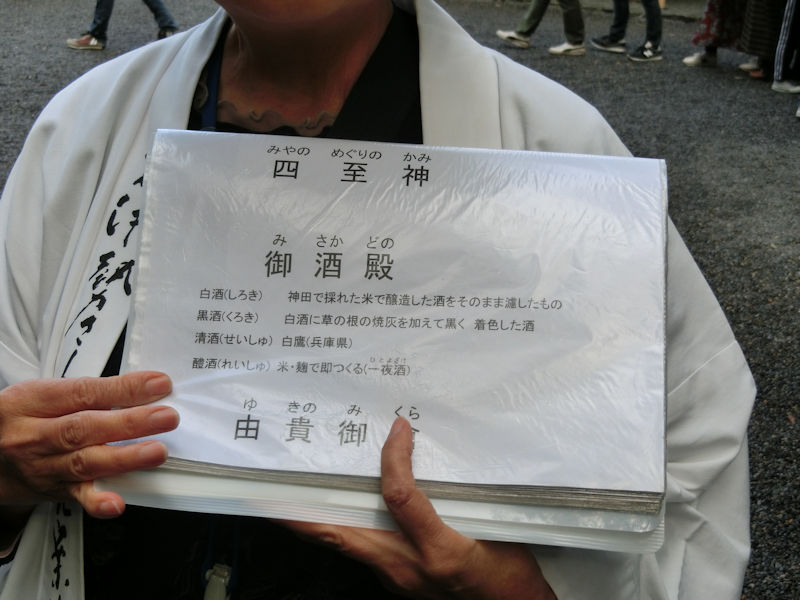 みやの めぐりの かみ
四 至 神
み さか どの
御 酒 殿
白酒(しろき) 神田で採れた米で醸造した酒をそのまま濾したもの
黒酒(くろき) 白酒に草の根の焼灰を加えて黒く 着色した酒
清酒(せいしゅ) 白鷹(兵庫県)
醴酒(れいしゅ) 米・麹で即つくる(一夜酒)
ひとよざけ
ゆ きの み くら
由 貴 御